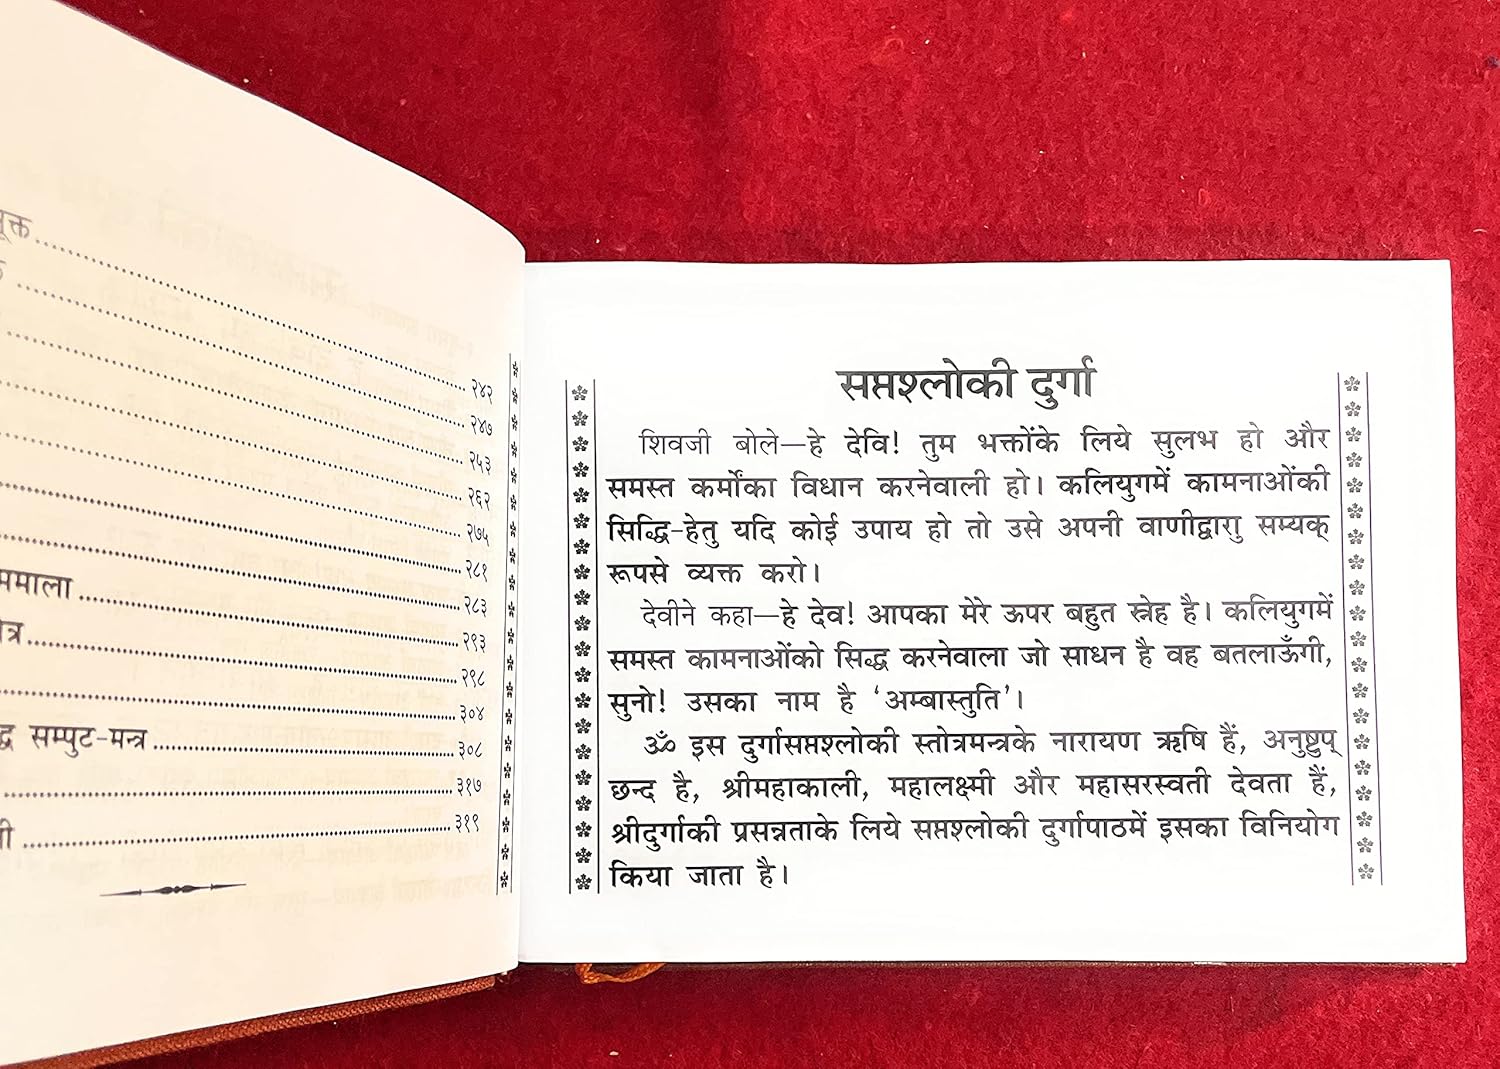 सूक्त
२४२
२४७
२५३
२६२
२७५
२८१
२८३
२९३
२९८
३०४
सम्पुट-मन्त्र ३०८
३१७
३१९
सप्तश्लोकी दुर्गा
शिवजी बोले—हे देवि! तुम भक्तोंके लिये सुलभ हो और
समस्त कर्मोंका विधान करनेवाली हो। कलियुगमें कामनाओंकी
सिद्धि-हेतु यदि कोई उपाय हो तो उसे अपनी वाणीद्वारा सम्यक्
रूपसे व्यक्त करो।
देवीने कहा—हे देव! आपका मेरे ऊपर बहुत स्नेह है। कलियुगमें
समस्त कामनाओंको सिद्ध करनेवाला जो साधन है वह बतलाऊँगी,
सुनो! उसका नाम है ‘अम्बास्तुति’।
ॐ इस दुर्गासप्तश्लोकी स्तोत्रमन्त्रके नारायण ऋषि हैं, अनुष्टुप्
छन्द है, श्रीमहाकाली, महालक्ष्मी और महासरस्वती देवता हैं,
श्रीदुर्गाकी प्रसन्नताके लिये सप्तश्लोकी दुर्गापाठमें इसका विनियोग
किया जाता है।